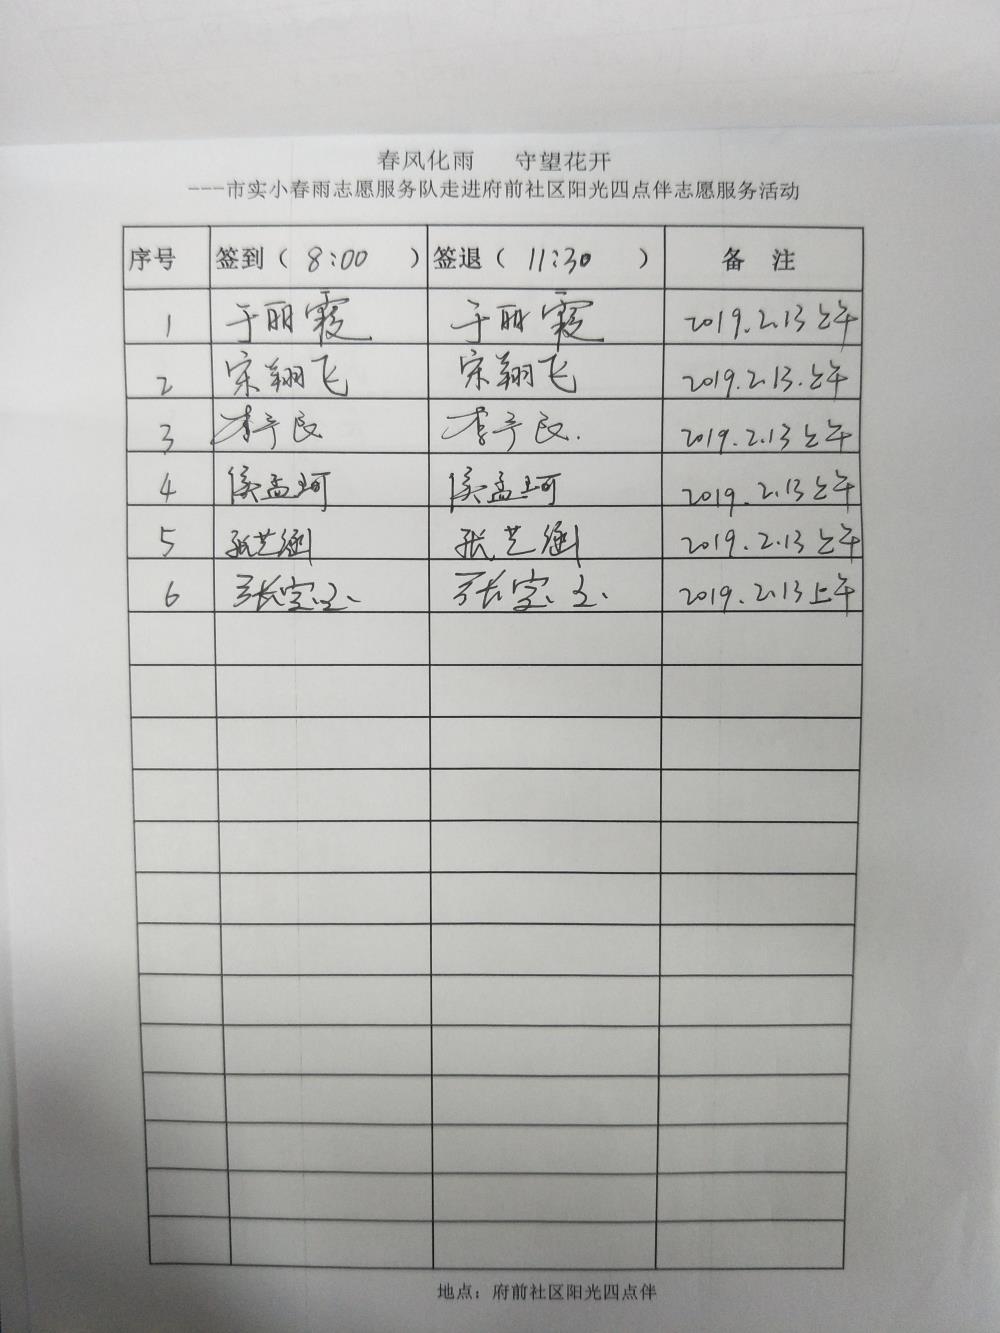 春风化雨 守望花开
---市实小春雨志愿服务队走进府前社区阳光四点伴志愿服务活动
序号 签到（ 8:00 ） 签退（ 11:30 ） 备 注
1 于丽霞 于丽霞 2019.2.13上午
2 宋翔飞 宋翔飞 2019.2.13.上午
3 李予民 李予民. 2019.2.13上午
4 侯孟珂 侯孟珂 2019.2.13上午
5 张艺涵 张艺涵 2019.2.13上午
6 张宝玉 张宝玉 2019.2.13上午
地点：府前社区阳光四点伴